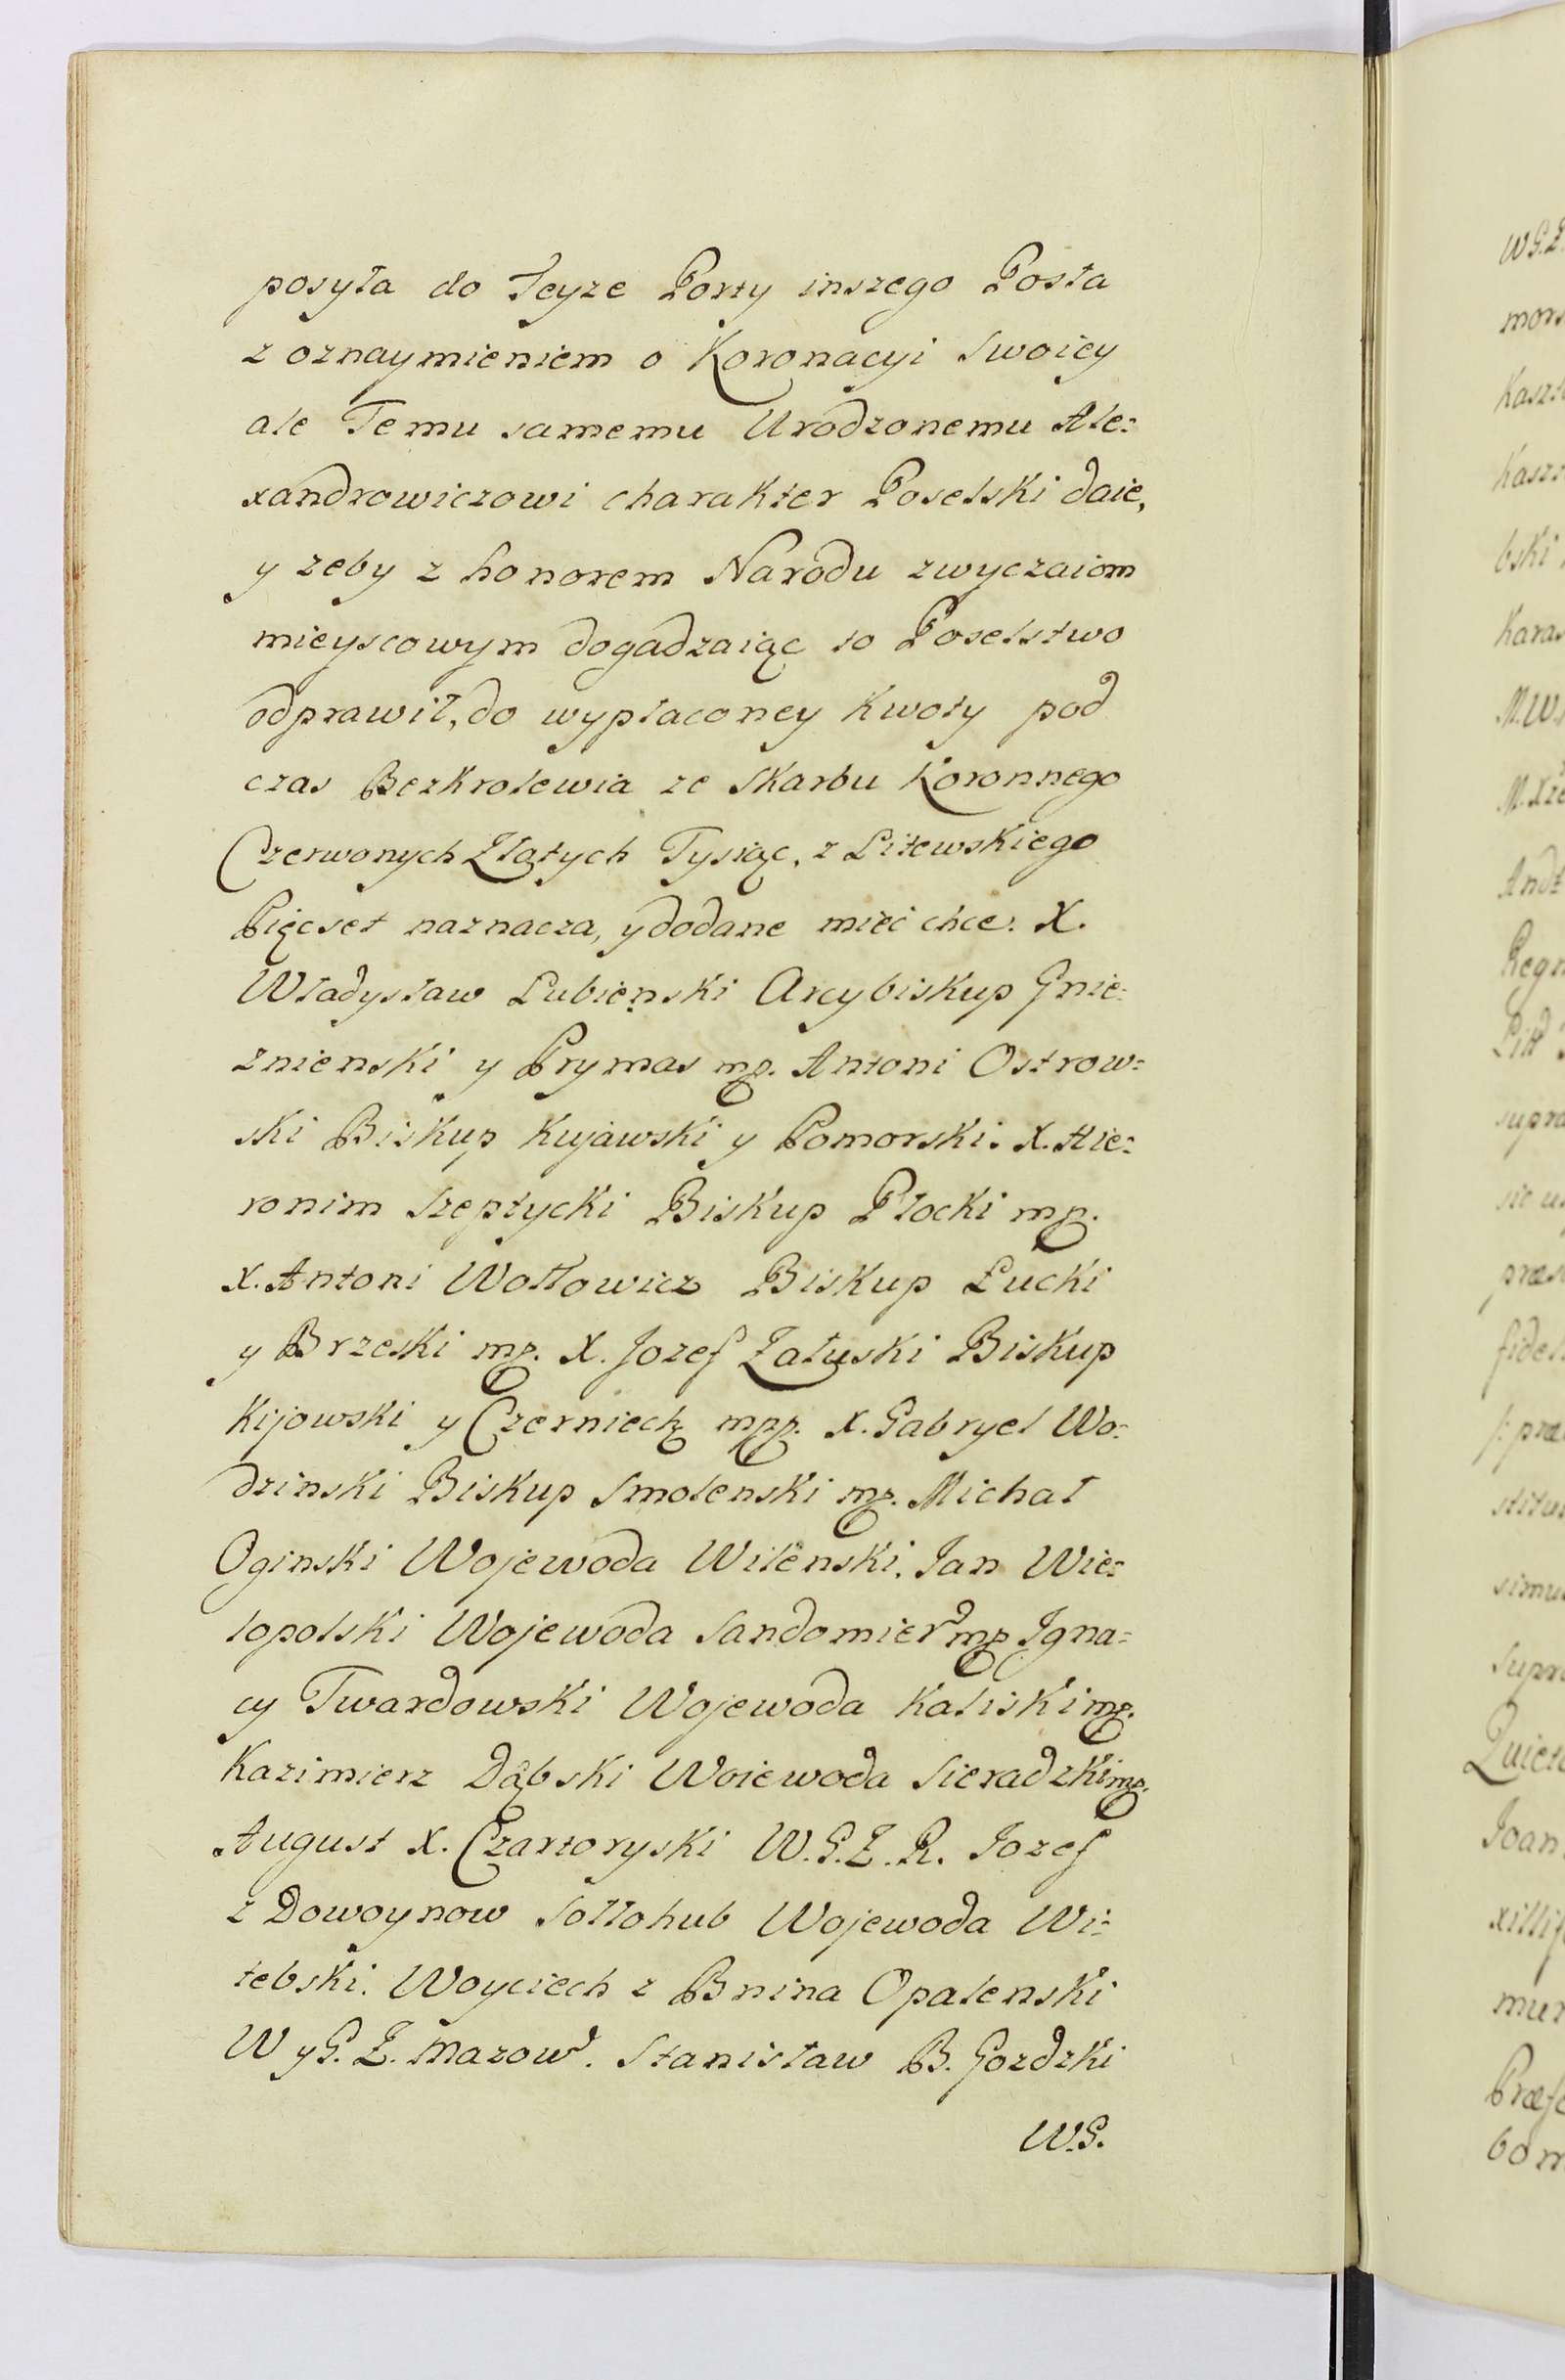 posyła do Teyze Porty inszego Posła
z oznaymieniem o Koronacyi Swoiey
ale Temu samemu Urodzonemu Ale:
xandrowiczowi charakter Poselski daie,
y zeby z honorem Narodu zwyczaiom
mieyscowym dogadzaiąc to Poselstwo
odprawił, do wypłaconey kwoty pod
czas Bezkrolewia ze Skarbu Koronnego
Czerwonych Złotych Tysiąc, z Litewskiego
Pięcset naznacza, y dodane mieć chce. X.
Władysław Lubieński Arcybiskup Gnie:
znienski y Prymas mp. Antoni Ostrow:
ski Biskup Kujawski y Pomorski. X. Hie:
ronim Szeptycki Biskup Płocki mp.
X. Antoni Wołłowicz Biskup Łucki
y Brzeski mp. X. Jozef Załuski Biskup
Kijowski y Czerniech mpp. X. Gabryel Wo:
dzinski Biskup Smolenski mp. Michał
Oginski Wojewoda Wilenski. Jan Wie:
lopolski Wojewoda Sandomier mp Igna:
cy Twardowski Wojewoda Kaliski mp.
Kazimierz Dąbski Woiewoda Sieradzki mp.
August X. Czartoryski W.G.Z.R. Jozef
z Dowoynow Sołłohub Wojewoda Wi:
tebski. Woyciech z Bnina Opalenski
W y G. Z. Mazow. Stanisław B. Gozdzki
W.G.